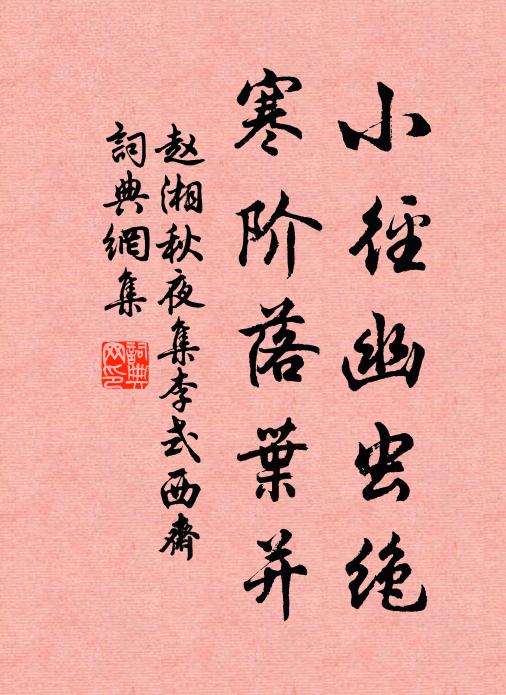 小徑幽虫绝
寒阶落葉并
赵湘秋夜集李式西齋
詞典網集
詞典网印